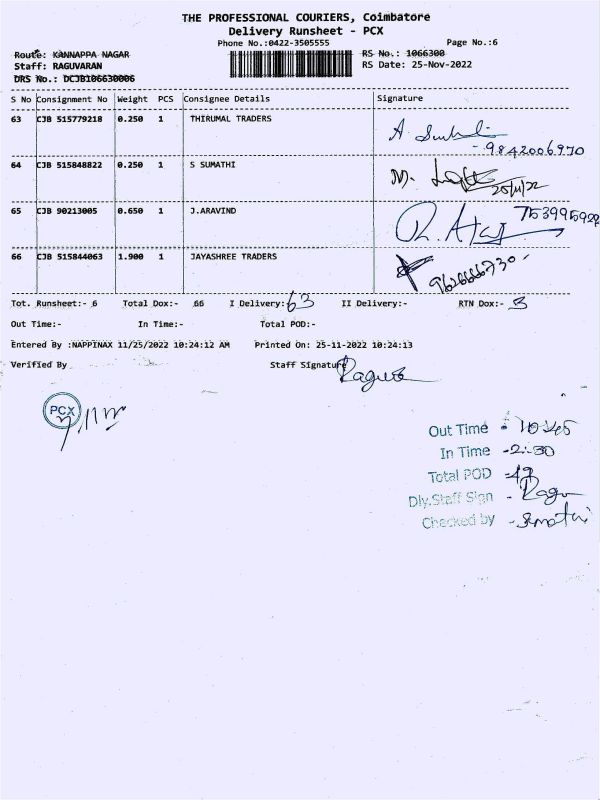 THE PROFESSIONAL COURIERS, Coimbatore
Delivery Runsheet - PCX
Phone No.:0422-3505555 Page No.:6
Route: KANNAPPA NAGAR RS No.: 1066300
Staff: RAGUVARAN RS Date: 25-Nov-2022
DRS No.: DCJB106630006
S No Consignment No Weight PCS Consignee Details Signature
63 CJB 515779218 0.250 1 THIRUMAL TRADERS
A - 9842006970
64 CJB 515848822 0.250 1 S SUMATHI
M. 25/11/22
65 CJB 90213005 0.650 1 J.ARAVIND
66 CJB 515844063 1.900 1 JAYASHREE TRADERS
9626666730 -
Tot. Runsheet:- 6 Total Dox:- 66 I Delivery:- 63 II Delivery:- RTN Dox:- 3
Out Time:- In Time:- Total POD:-
Entered By :NAPPINAX 11/25/2022 10:24:12 AM Printed On: 25-11-2022 10:24:13
Verified By Staff Signature
PCX
Out Time : 10:45
In Time - 2:30
Total POD - 49
Dly.Staff Sign - Ragu
Checked by -